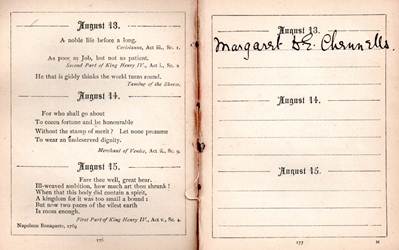 August 13.
A noble life before a long.
Coriolanus, Act iii., Sc. 1.
As poor as Job, but not so patient.
Second Part of King Henry IV., Act i., Sc. 2
He that is giddy thinks the world turns round.
Taming of the Shrew.
August 14.
For who shall go about
To cozen fortune and be honourable
Without the stamp of merit? Let none presume
To wear an undeserved dignity.
Merchant of Venice, Act ii., Sc. 9.
August 15.
Fare thee well, great hear.
Ill-weaved ambition, how much art thou shrunk!
When that this body did contain a spirit,
A kingdom for it was too small a bound:
But now two paces of the vilest earth
Is room enough.
First Part of King Henry IV., Act v., Sc. 4.
Napoleon Bonaparte, 1769
176
August 13.
Margaret D E. Chennells.
August 14.
August 15.
177